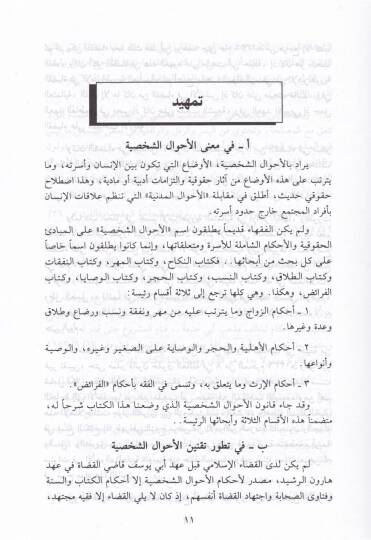 تمهيد
أ ـ في معنى الأحوال الشخصية
يراد بالأحوال الشخصية، الأوضاع التي تكون بين الإنسان وأسرته، وما
يترتب على هذه الأوضاع من آثار حقوقية والتزامات أدبية أو مادية، وهذا اصطلاح
حقوقي حديث، أطلق في مقابلة «الأحوال المدنية» التي تنظم علاقات الإنسان
بأفراد المجتمع خارج حدود أسرته.
ولم يكن الفقهاء قديماً يطلقون اسم «الأحوال الشخصية» على المبادئ
الحقوقية والأحكام الشاملة للأسرة ومتعلقاتها، وإنما كانوا يطلقون اسماً خاصاً
على كل بحث من أبحاثها.. فكتاب النكاح، وكتاب المهر، وكتاب النفقات
وكتاب الطلاق، وكتاب النسب، وكتاب الحجر، وكتاب الوصايا، وكتاب
الفرائض، وهكذا. وهي كلها ترجع إلى ثلاثة أقسام رئيسة:
١ ـ أحكام الزواج وما يترتب عليه من مهر ونفقة ونسب ورضاع وطلاق
وعدة وغيرها.
٢ ـ أحكام الأهلية والحجر والوصاية على الصغير وغيره، والوصية
وأنواعها.
٣ ـ أحكام الإرث وما يتعلق به، وتسمى في الفقه بأحكام «الفرائض».
وقد جاء قانون الأحوال الشخصية الذي وضعنا هذا الكتاب شرحاً له،
متضمناً هذه الأقسام الثلاثة وأبحاثها الرئيسة..
ب ـ في تطور تقنين الأحوال الشخصية
لم يكن لدى القضاء الإسلامي قبل عهد أبي يوسف قاضي القضاة في عهد
هارون الرشيد، مصدر لأحكام الأحوال الشخصية إلا أحكام الكتاب والسنة
وفتاوى الصحابة واجتهاد القضاة أنفسهم، إذ كان لا يلي القضاء إلا فقيه مجتهد،
١١